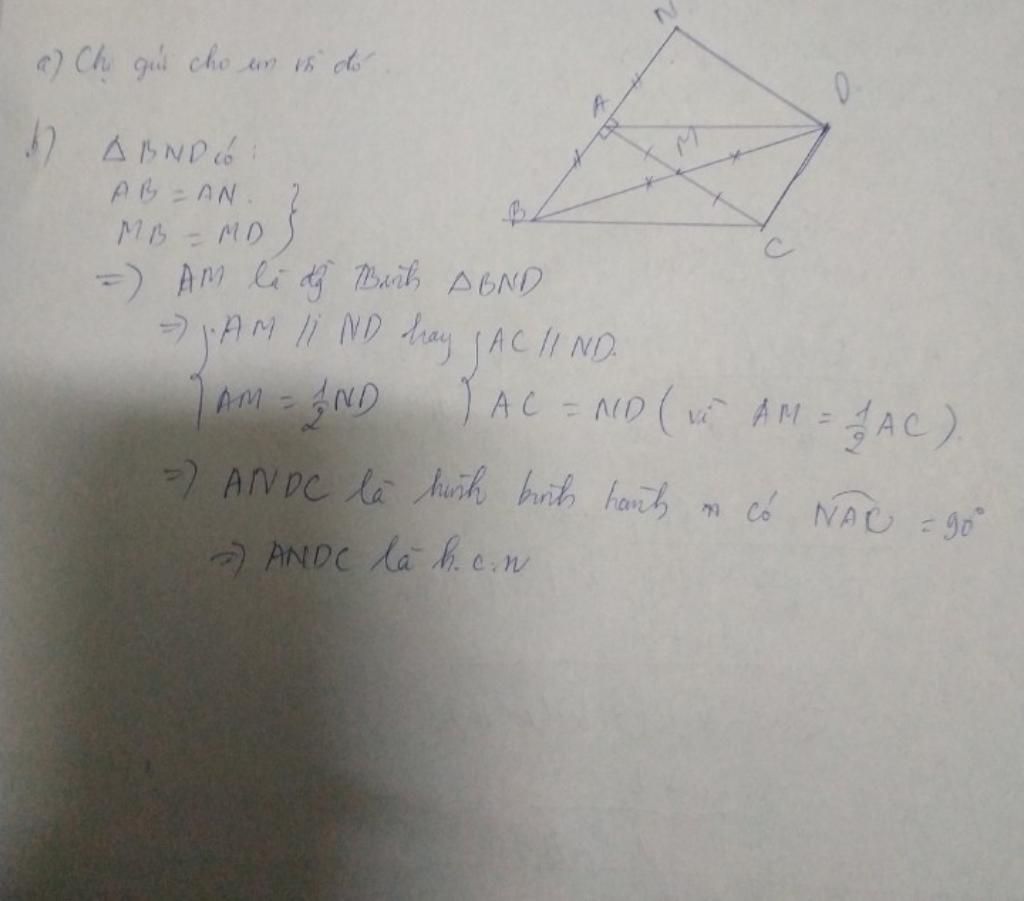 a) Chị gửi cho em rồi đó.
b) Δ BND có:
AB = AN.
MB = MD }
=) AM là đg TBình Δ BND
=) { AM // ND hay { AC // ND.
{ AM = 1/2 ND { AC = ND ( vì AM = 1/2 AC ).
=) ANDC là hình bình hành có NAC = 90°
=) ANDC là h.c.n
N
A
D
M
B
C